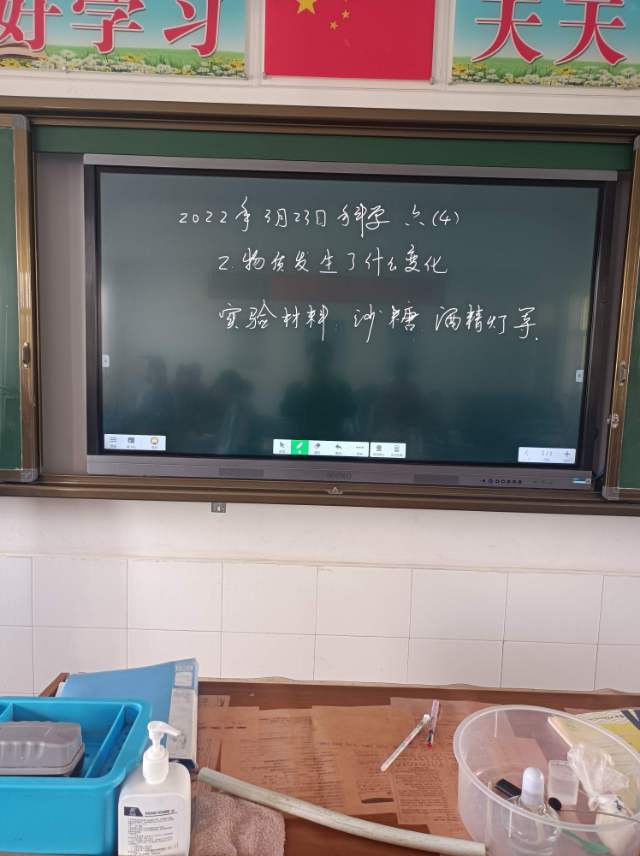 好学习
天天
2022年3月23日 科学 六(4)
2.物质发生了什么变化
实验材料 沙糖 酒精灯等.